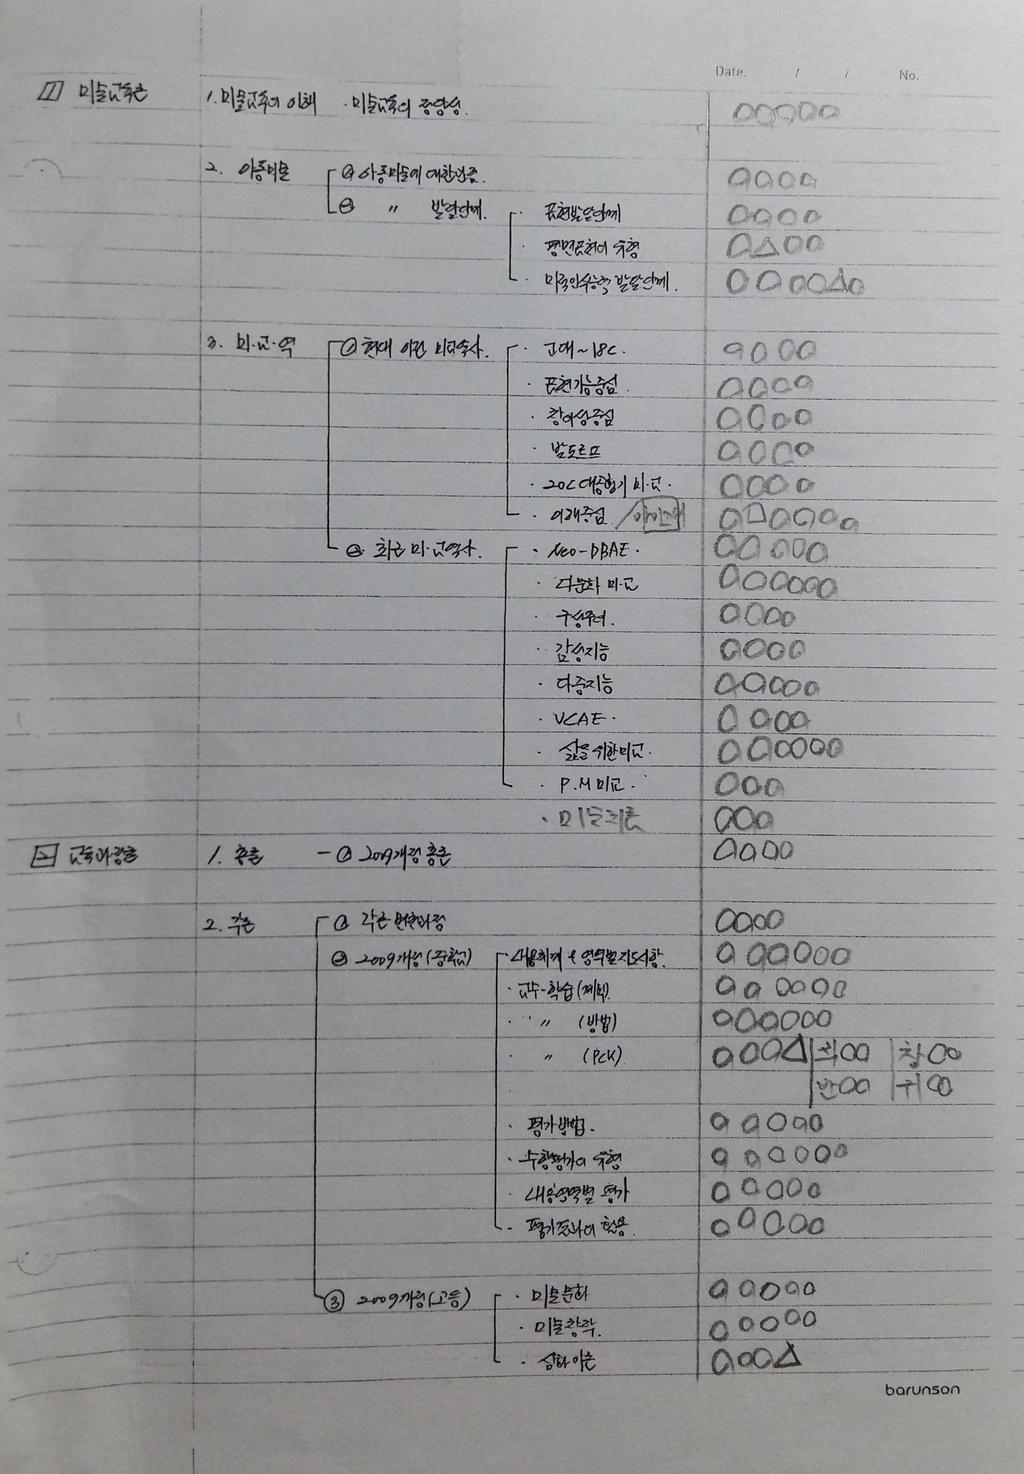 Date. / / No.
1 미술교육론 1. 미술교육의 이해 · 미술교육의 중요성.
2. 아동미술 ① 아동미술에 대한
② 〃 발달단계. · 표현발달단계
· 평면표현의 유형
· 미적인식능력 발달단계.
3. 미·교·역 ① 현대 이전 미교육사. · 고대~18C.
· 표현기능중심.
· 창의성중심
· 발도르프
· 20C 대중향기 미·교.
· 이해중심
② 최근 미·교역사. · Neo-DBAE.
· 다문화 미·교
· 구성주의.
· 감성지능
· 다중지능
· VCAE.
· 삶을 위한 미교.
· P.M 미교.
· 미술치료
2 교육과정론 1. 총론 - ① 2009개정 총론
2. 각론 ① 각론 변천과정
② 2009개정(중학교) · 내용체계 & 영역별 지도사항.
· 교수·학습(계획).
· 〃 (방법)
· 〃 (PCK) 최 창
반 귀
· 평가방법.
· 수행평가의 유형
· 내용영역별 평가
· 평가결과의 활용.
③ 2009개정(고등) · 미술문화
· 미술창작.
barunson